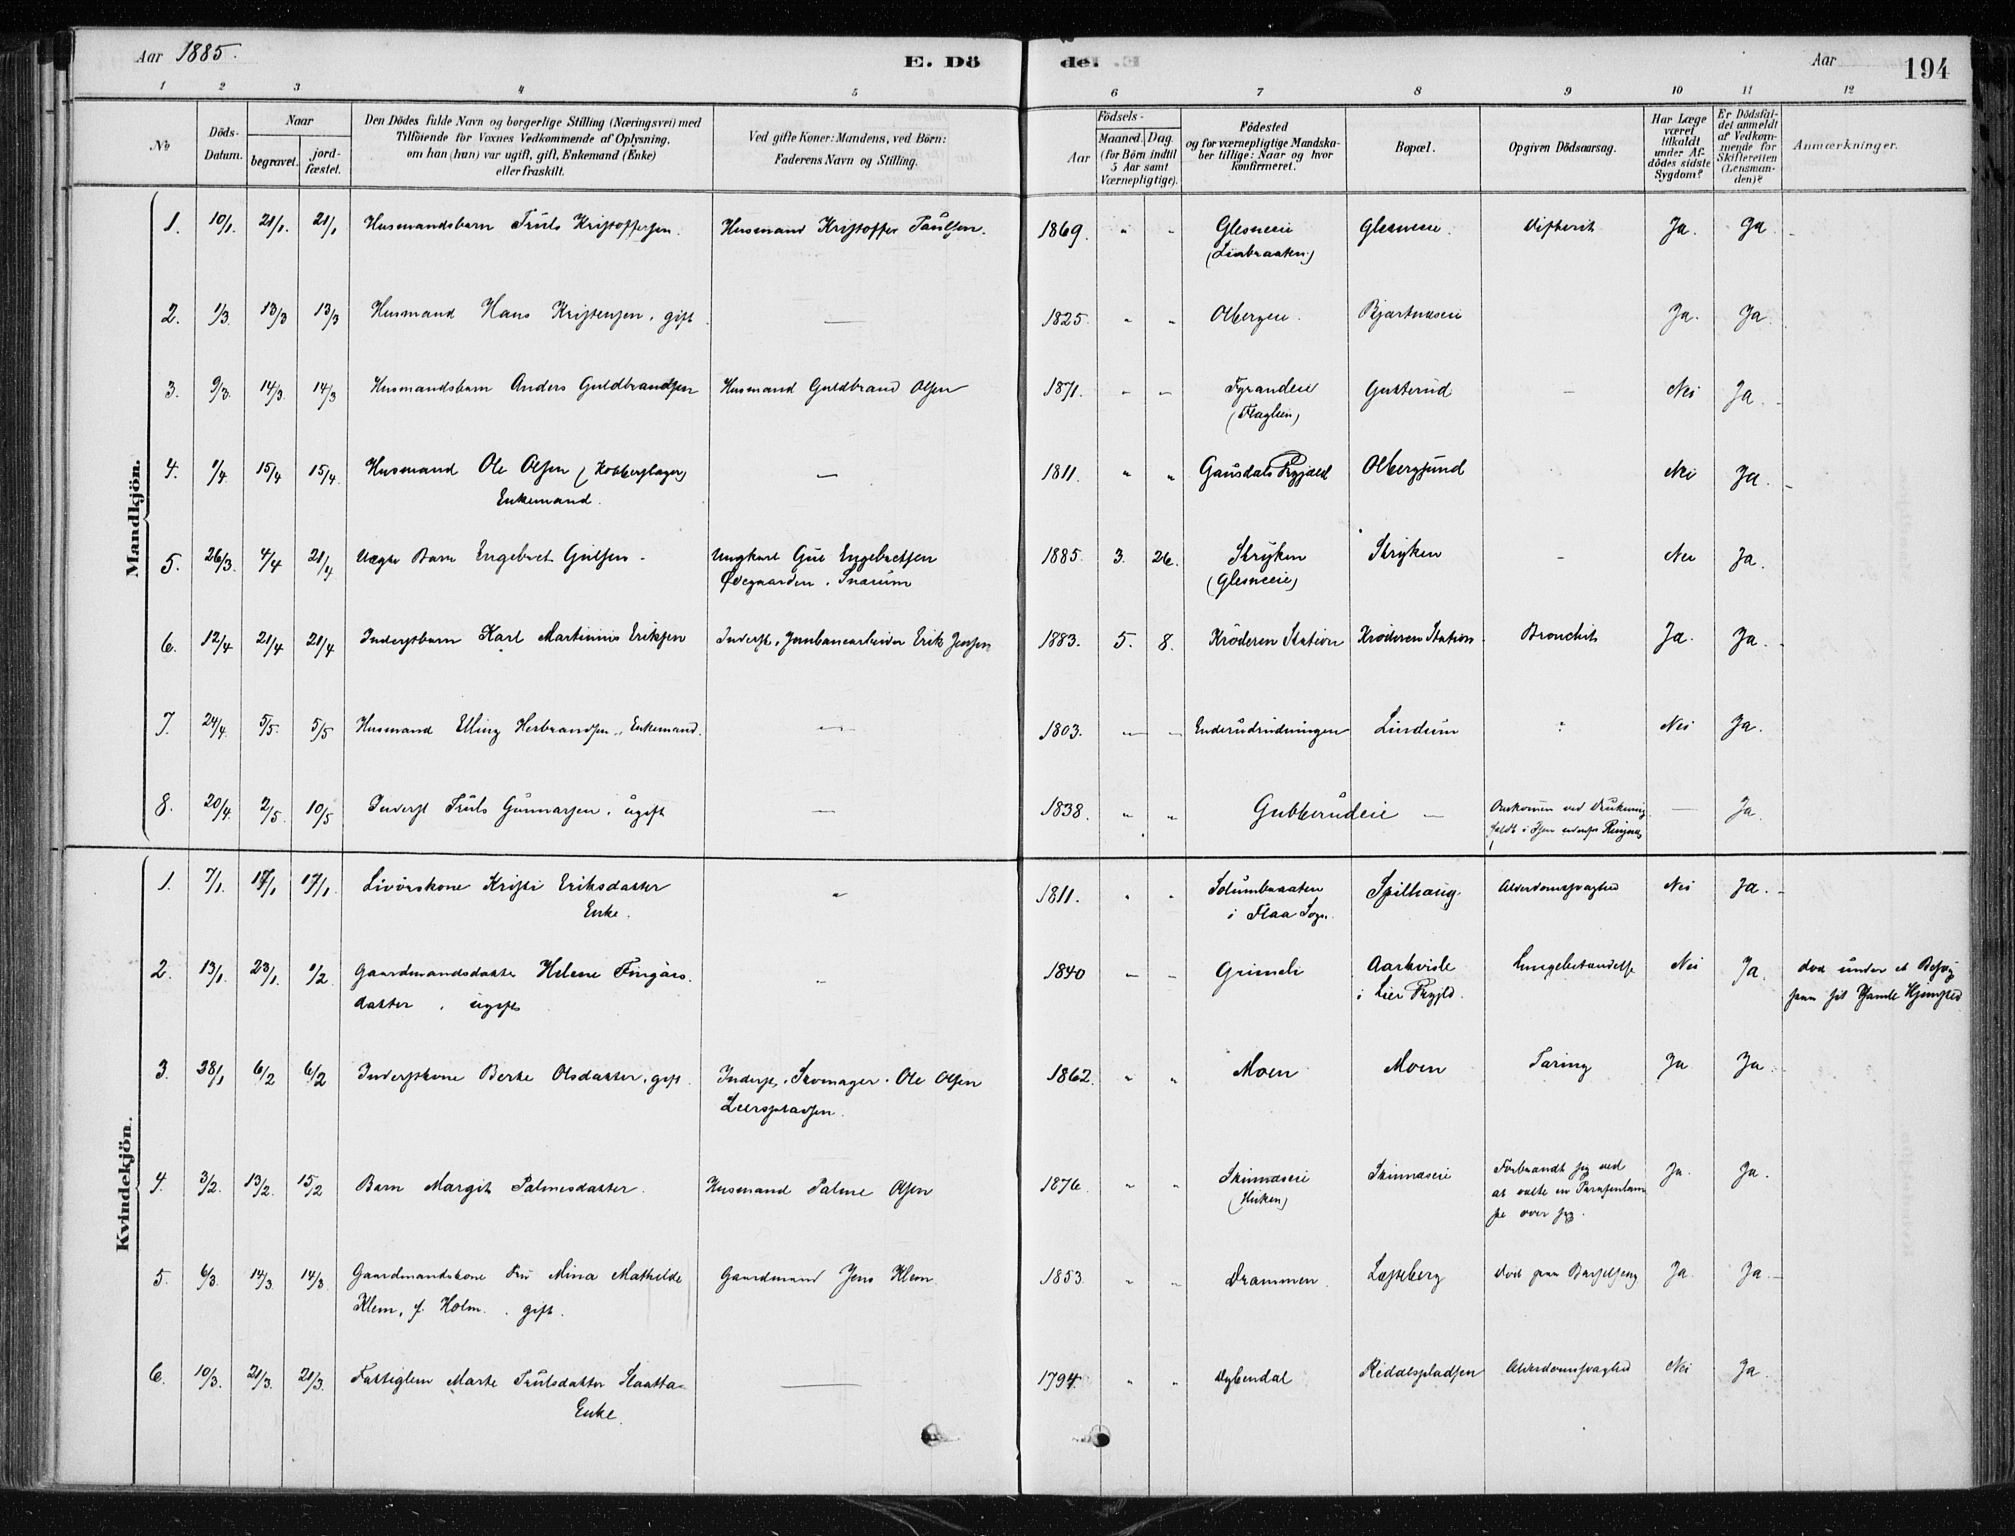 Aar 1885.
E. Dö
de.
Aar
194
1 2 3 4 5 6 7 8 9 10 11 12
No
Döds-Datum.
Naar
begravet.
jord-fæstet.
Den Dödes fulde Navn og borgerlige Stilling (Næringsvei) med
Tilföiende for Voxnes Vedkommende af Oplysning,
om han (hun) var ugift, gift, Enkemand (Enke)
eller fraskilt.
Ved gifte Koner: Mandens, ved Börn:
Faderens Navn og Stilling.
Födsels-
Aar
Maaned. Dag.
(for Börn indtil
5 Aar samt
Værnepligtige).
Födested
og for værnepligtige Mandska-
ber tillige: Naar og hvor
konfirmeret.
Bopæl.
Opgiven Dödsaarsag.
Har Læge
været
tilkaldt
under Af-
dödes sidste
Sygdom?
Er Dödsfal-
det anmeldt
af Vedkom-
mende for
Skifteretten
(Lensman-
den)?
Anmærkninger.
Mandkjön.
1. 10/1. 21/1. 21/1 Husmandsbarn Truls Kristoffersen. Husmand Kristoffer Paulsen. 1869. " " Glesneeie Glesneeie. Difterit Ja. Ja
(Linbraaten)
2. 1/3. 13/3 13/3 Husmand Hans Kristensen, gift — 1825. " " Olbergeie. Bjertnæseie Ja. Ja.
3. 9/3. 14/3. 14/3 Husmandsbarn Anders Guldbrandsen Husmand Guldbrand Olsen 1871. " " Fyrandeie Gusterud — Nei Ja.
(Flaglien)
4. 1/4. 15/4 15/4. Husmand Ole Olsen (Kobberslager) — 1811. " " Gausdals Prgjæld Olbergsund Nei Ja.
Enkemand.
5. 26/3. 4/4 21/4 Uægte Barn Engebret Gulsen. Ungkarl Gul Engebretsen 1885. 3. 26. Stryken Stryken - Nei Ja.
Ødegaarden. Snarum (Glesneeie)
6. 12/4 21/4 21/4 Inderstbarn Karl Martinius Eriksen Inderst, Jernbanearbeider Erik Jensen 1883. 5. 8. Krøderen Station Krøderen Station. Bronchit Ja. Ja.
7. 24/4. 5/5. 5/5 Husmand Elling Herbrandsen, Enkemand. — 1803. " " Enderudrudningen Lindum Nei Ja.
8. 20/4. 2/5. 10/5 Inderst Truls Gunnarsen, ugift — 1838. " " Gubberudeie — Omkommen ved Drukning — Ja.
faldt i Isen
Kvindekjön.
1. 7/1. 17/1 17/1. Livørskone Kristi Eriksdatter " 1811. " " Solumbraaten Spilhaug. Alderdomssvaghed Nei Ja.
Enke. i Flaa Sogn.
2. 13/1. 23/1. 1/2 Gaardmandsdatter Helene Fingars- " 1840 " " Grimeli Aarkvisle Lungebetændelse Nei Ja. død under et Besøg
datter, ugift i Lier Prgjld. paa sit gamle Hjemsted
3. 28/1 6/2 6/2 Inderstkone Berte Olsdatter, gift. Inderst, Skomager. Ole Olsen 1862. " " Moen Moen Tæring Ja Ja.
Leerspladsen.
4. 3/2. 13/2. 15/2 Barn Margit Palmesdatter. Husmand Palme Olsen 1876. " " Skinnæseie Skinnæseie Forbrandt sig ved Ja. Ja.
(Viken) at vælte en Parafinlam-
pe over sig.
5. 6/3. 14/3 14/3. Gaardmandskone Fru Mina Mathilde Gaardmand Jens Klem. 1853 " " Drammen Læsteberg død paa Barselseng Ja. Ja.
Klem, f. Holm. gift.
6. 10/3. 21/3. 21/3. Fattiglem Marte Trulsdatter Slaatta — 1794. " " Dybendal Riddelspladsen Alderdomssvaghed Nei Ja.
Enke.